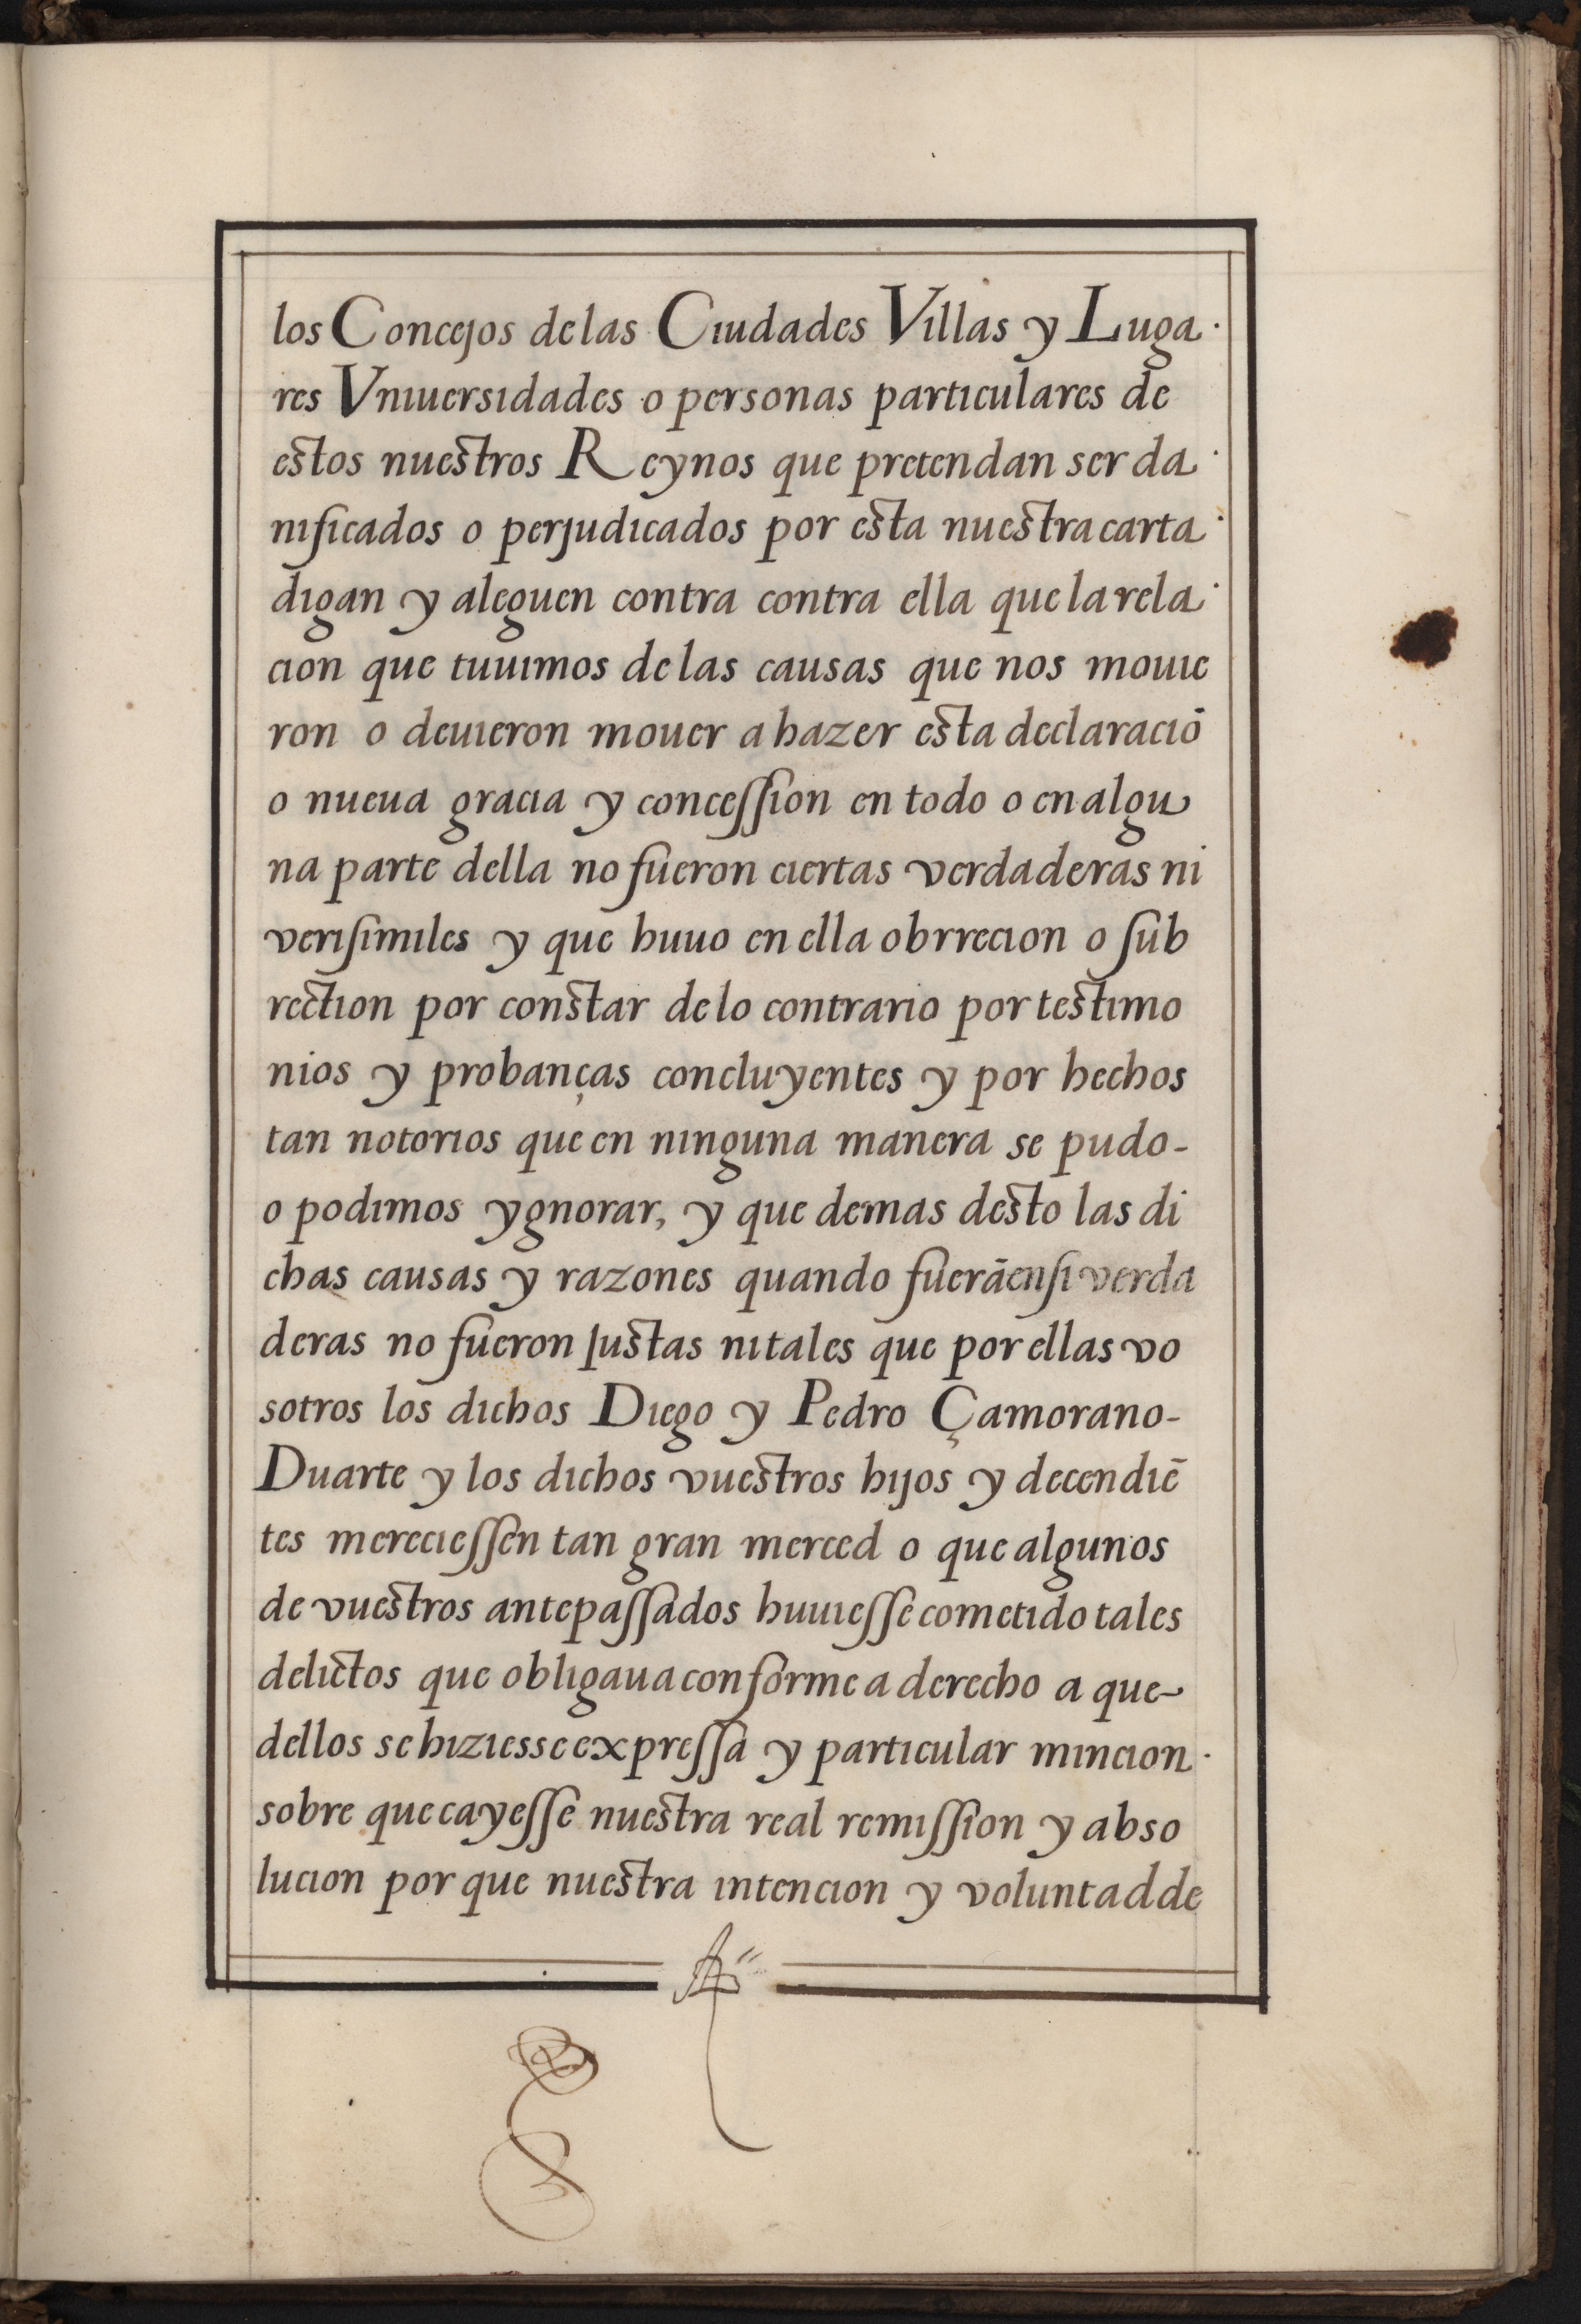 los Concejos de las Ciudades Villas y Luga
res Vniuersidades o personas particulares de
estos nuestros Reynos que pretendan ser da
nificados o perjudicados por esta nuestra carta
digan y aleguen contra contra ella que la rela
cion que tuuimos de las causas que nos mouie
ron o deuieron mouer a hazer esta declaraciō
o nueua gracia y conceſſion en todo o en algu
na parte della no fueron ciertas verdaderas ni
veriſimiles y que huuo en ella obrrecion o ſub
rection por constar de lo contrario por testimo
nios y probanças concluyentes y por hechos
tan notorios que en ninguna manera se pudo-
o podimos ygnorar, y que demas desto las di
chas causas y razones quando fuerā en ſi verda
deras no fueron Justas ni tales que por ellas vo
sotros los dichos Diego y Pedro Çamorano-
Duarte y los dichos vuestros hijos y decendiē
tes merecieſſen tan gran merced o que algunos
de vuestros antepaſſados huuieſſe cometido tales
delictos que obligaua conforme a derecho a que
dellos se hiziesse expreſſa y particular mincion
sobre que cayeſſe nuestra real remiſſion y abso
lucion por que nuestra intencion y voluntad de